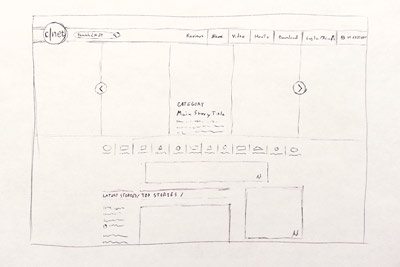 c|net
Search CNET
Reviews News Video How To Download Log In / Join
US EDITION
CATEGORY
Main Story Title
LATEST STORIES / TOP STORIES /